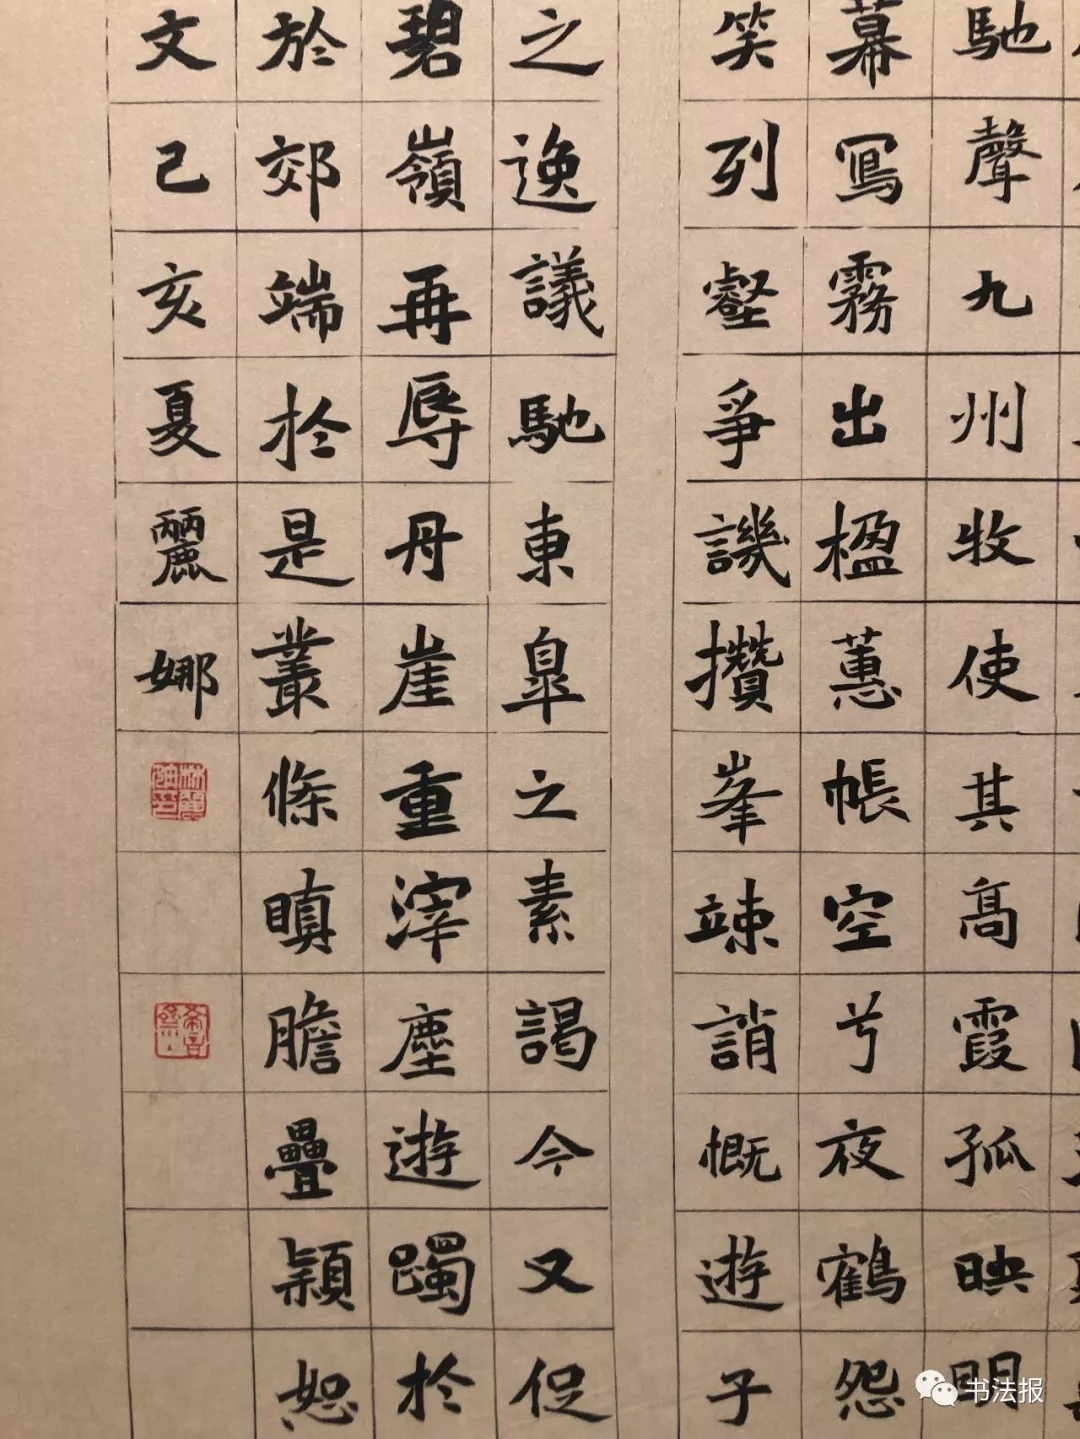 馳聲九州牧使其高霞孤映明
幕寫霧出楹蕙帳空兮夜鶴怨
笑列壑爭譏攢峯竦誚慨遊子
之逸議馳東皐之素謁今又促
碧嶺再辱丹崖重滓塵遊躅於
於郊端於是叢條瞋膽疊穎怒
文己亥夏麗娜
书法报